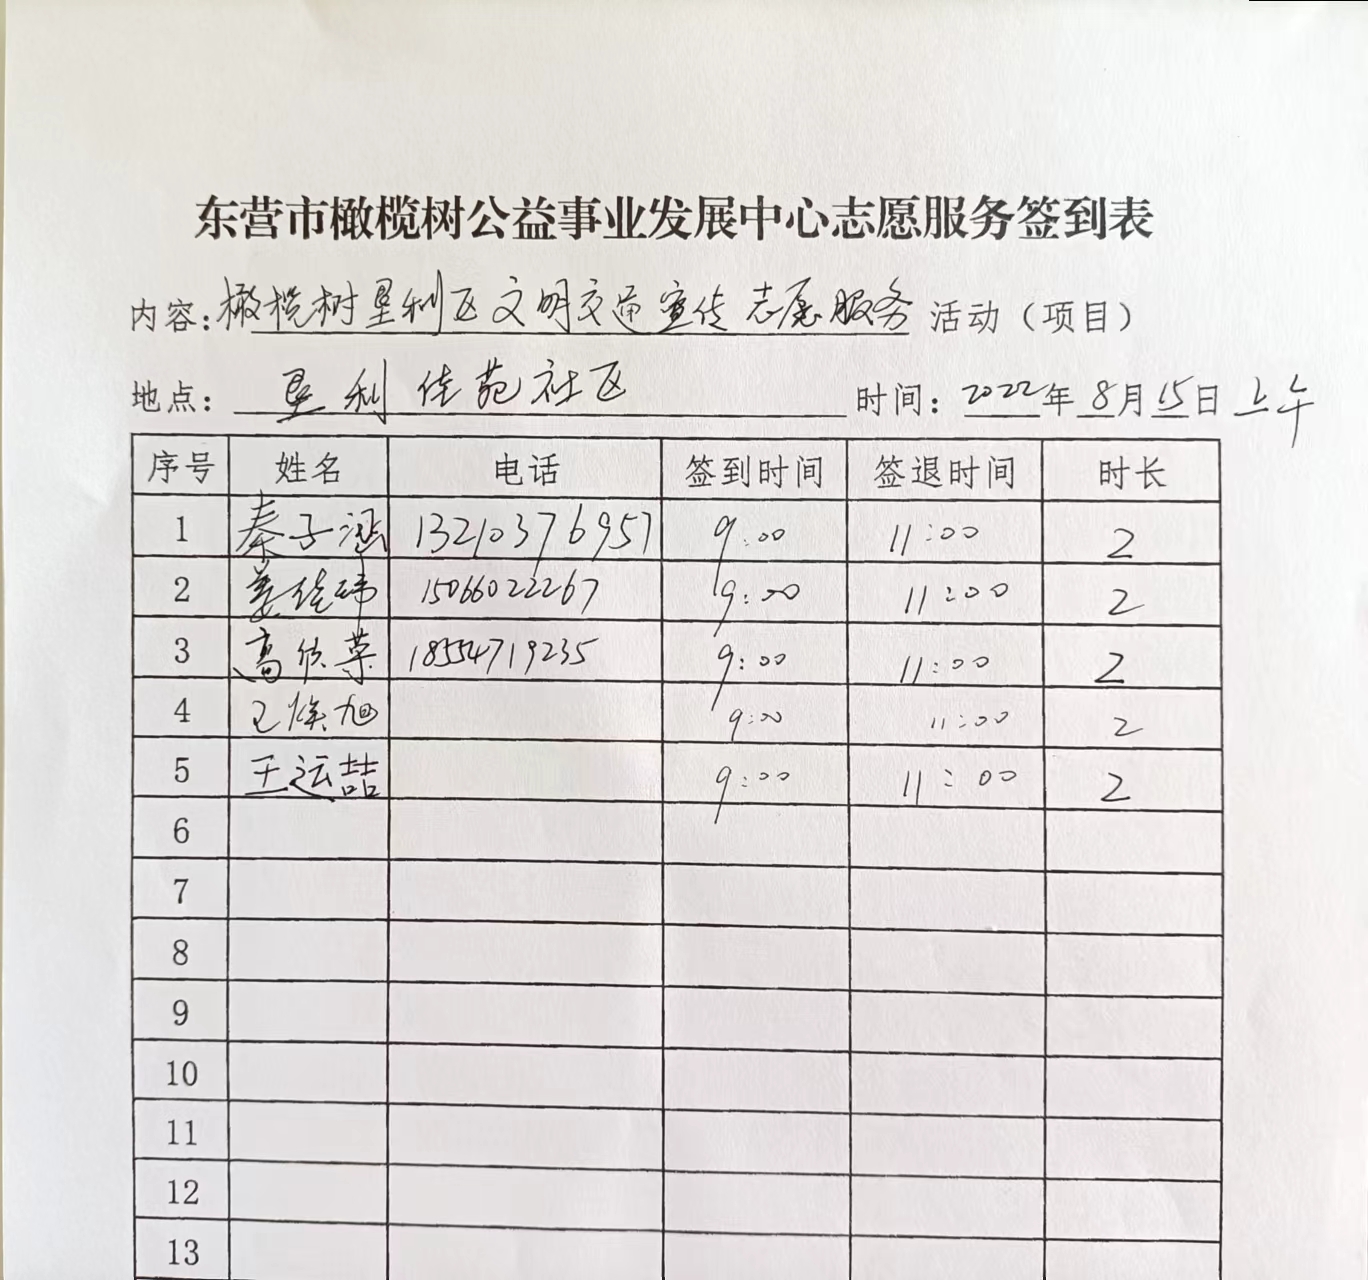 东营市橄榄树公益事业发展中心志愿服务签到表
内容：橄榄树垦利区文明交通宣传志愿服务 活动（项目）
地点： 垦利佳苑社区 时间：2022年 8月15日 上午
序号 姓名 电话 签到时间 签退时间 时长
1 秦子涵 13210376957 9:00 11:00 2
2 姜佳玮 15066022267 9:00 11:00 2
3 高欣荣 18554719235 9:00 11:00 2
4 王焕旭 9:00 11:00 2
5 王运喆 9:00 11:00 2
6
7
8
9
10
11
12
13